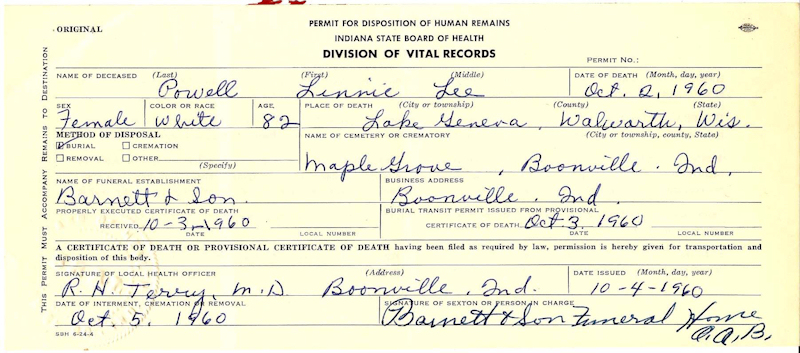 ORIGINAL
PERMIT FOR DISPOSITION OF HUMAN REMAINS
INDIANA STATE BOARD OF HEALTH
DIVISION OF VITAL RECORDS
PERMIT NO.:
THIS PERMIT MUST ACCOMPANY REMAINS TO DESTINATION
NAME OF DECEASED (Last) (First) (Middle) DATE OF DEATH (Month, day, year)
Powell Linnie Lee Oct. 2, 1960
SEX COLOR OR RACE AGE PLACE OF DEATH (City or township) (County) (State)
Female White 82 Lake Geneva, Walworth, Wis.
METHOD OF DISPOSAL NAME OF CEMETERY OR CREMATORY (City or township, county, State)
BURIAL CREMATION
REMOVAL OTHER (Specify) Maple Grove, Boonville. Ind.
NAME OF FUNERAL ESTABLISHMENT BUSINESS ADDRESS
Barnett & Son. Boonville. Ind.
PROPERLY EXECUTED CERTIFICATE OF DEATH BURIAL TRANSIT PERMIT ISSUED FROM PROVISIONAL
RECEIVED 10-3-1960 CERTIFICATE OF DEATH: Oct. 3, 1960
DATE LOCAL NUMBER DATE LOCAL NUMBER
A CERTIFICATE OF DEATH OR PROVISIONAL CERTIFICATE OF DEATH having been filed as required by law, permission is hereby given for transportation and
disposition of this body.
SIGNATURE OF LOCAL HEALTH OFFICER (Address) DATE ISSUED (Month, day, year)
R. H. Terry, M.D. Boonville, Ind. 10-4-1960
DATE OF INTERMENT, CREMATION OR REMOVAL SIGNATURE OF SEXTON OR PERSON IN CHARGE
Oct. 5, 1960 Barnett & Son Funeral Home
A.A.B.
SBH 6-24-4